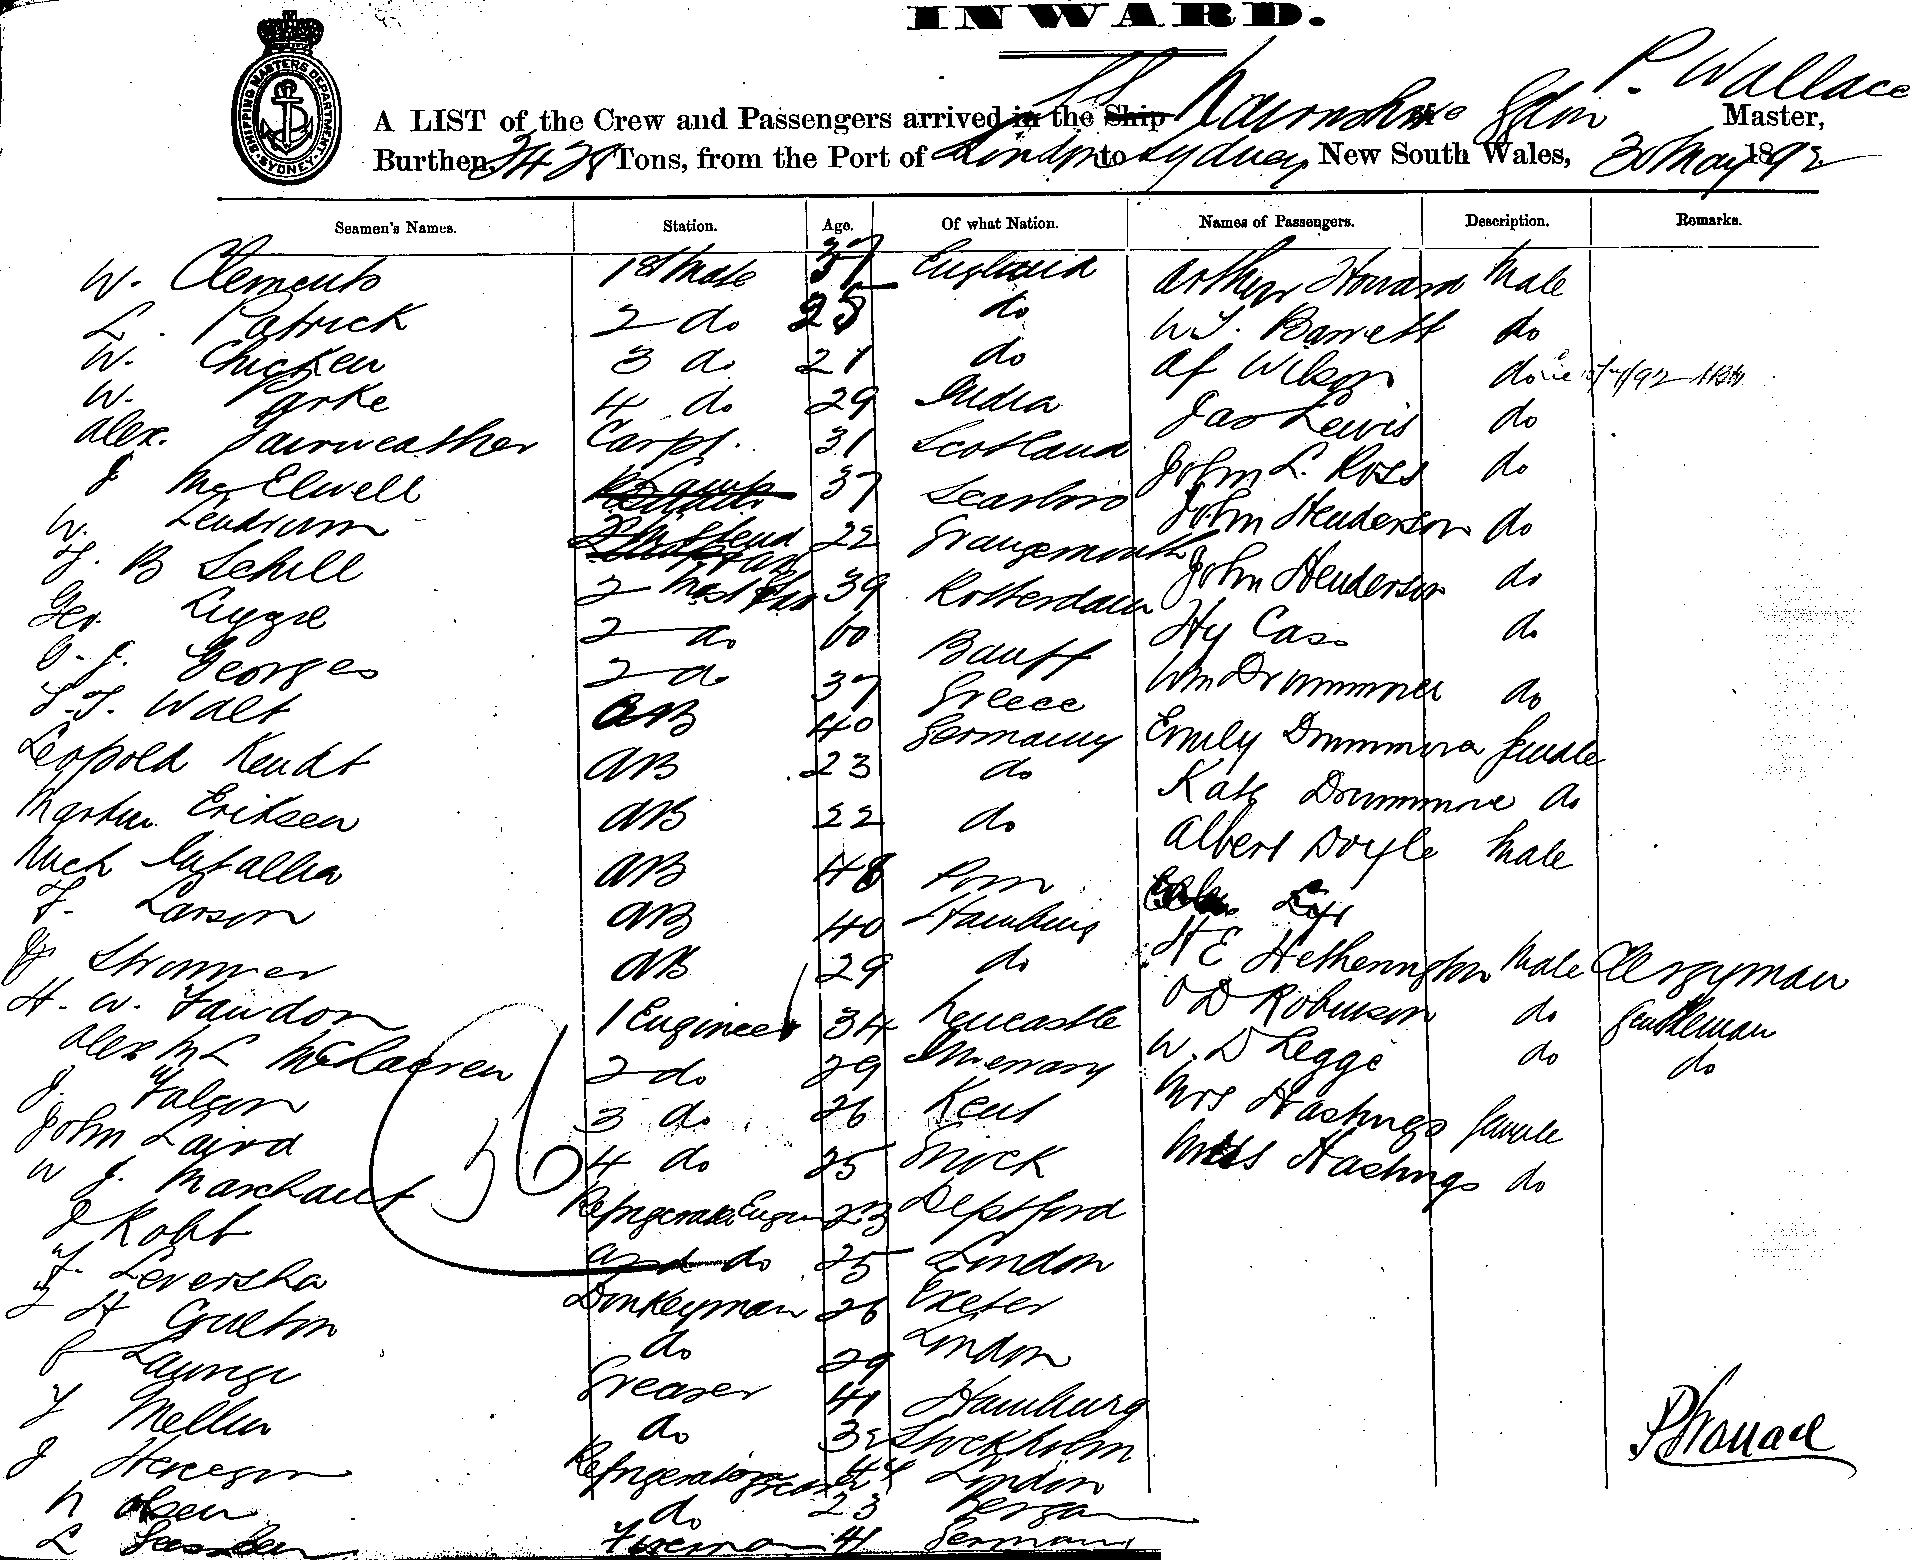 INWARD.
SHIPPING MASTERS DEPARTMENT SYDNEY
P. Wallace
A LIST of the Crew and Passengers arrived in the Ship Nairnshire of Master,
Burthen 2428 Tons, from the Port of London to Sydney New South Wales, 30 May 1892
Seamen's Names. Station. Age. Of what Nation. Names of Passengers. Description. Remarks.
W. Clements 1st Mate 37 England Arthur Howard Male
L. Patrick 2 do 25 do W J. Barrett do
W. Chicken 3 do 21 do Af Wilson do
W. Parke 4 do 29 India Jas Lewis do
Alex. Fairweather Carpt. 31 Scotland John L. Ross do
J McElwell 37 Scarboro John Henderson do
W. Lendrum 22 Grangemouth John Henderson do
J. B Schill 2 39 Rotterdam Hy Cass do
Geo. Liggie 2 do 60 Banff Wm Drummond do
G. J. Georges 2 do 37 Greece Emily Drummond female
Walt AB 40 Germany Kate Drummond do
Leopold Kendt AB 23 do Albert Doyle Male
Martin Eriksen AB 22 do
Mich AB 48
F. Larson AB 40 Hamburg H E Hetherington Male Clergyman
Strommer AB 29 do O D Robinson do Gentleman
H. W. Fawdon 1 Engineer 34 Newcastle W. D Legge do do
Alex McL McLaaren 2 do 29 Mrs Hastings female
J. Falcon 3 do 26 Kent Miss Hastings do
John Laird 4 do 25
W J. Marchant Refrigerator Engin 23 Deptford
J Robt do 25 London
F. Leversha Donkeyman 26 Exeter
H Coulton do 29 London
Launge Greaser 41 Hamburg
Mellin do 32 Stockholm
J Refrigerating 44 London
N Olsen do 23 Bergan
L Fireman 41 Germany
56
P Wallace